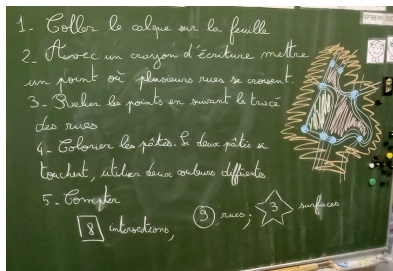 1- Coller le calque sur la feuille
2- Avec un crayon d'écriture mettre
un point où plusieurs rues se croisent.
3- Relier les points en suivant le tracé
des rues
4- Colorier les pâtés. Si deux pâtés se
touchent, utiliser deux couleurs différentes
5- Compter
8 intersections, 9 rues, 3 surfaces